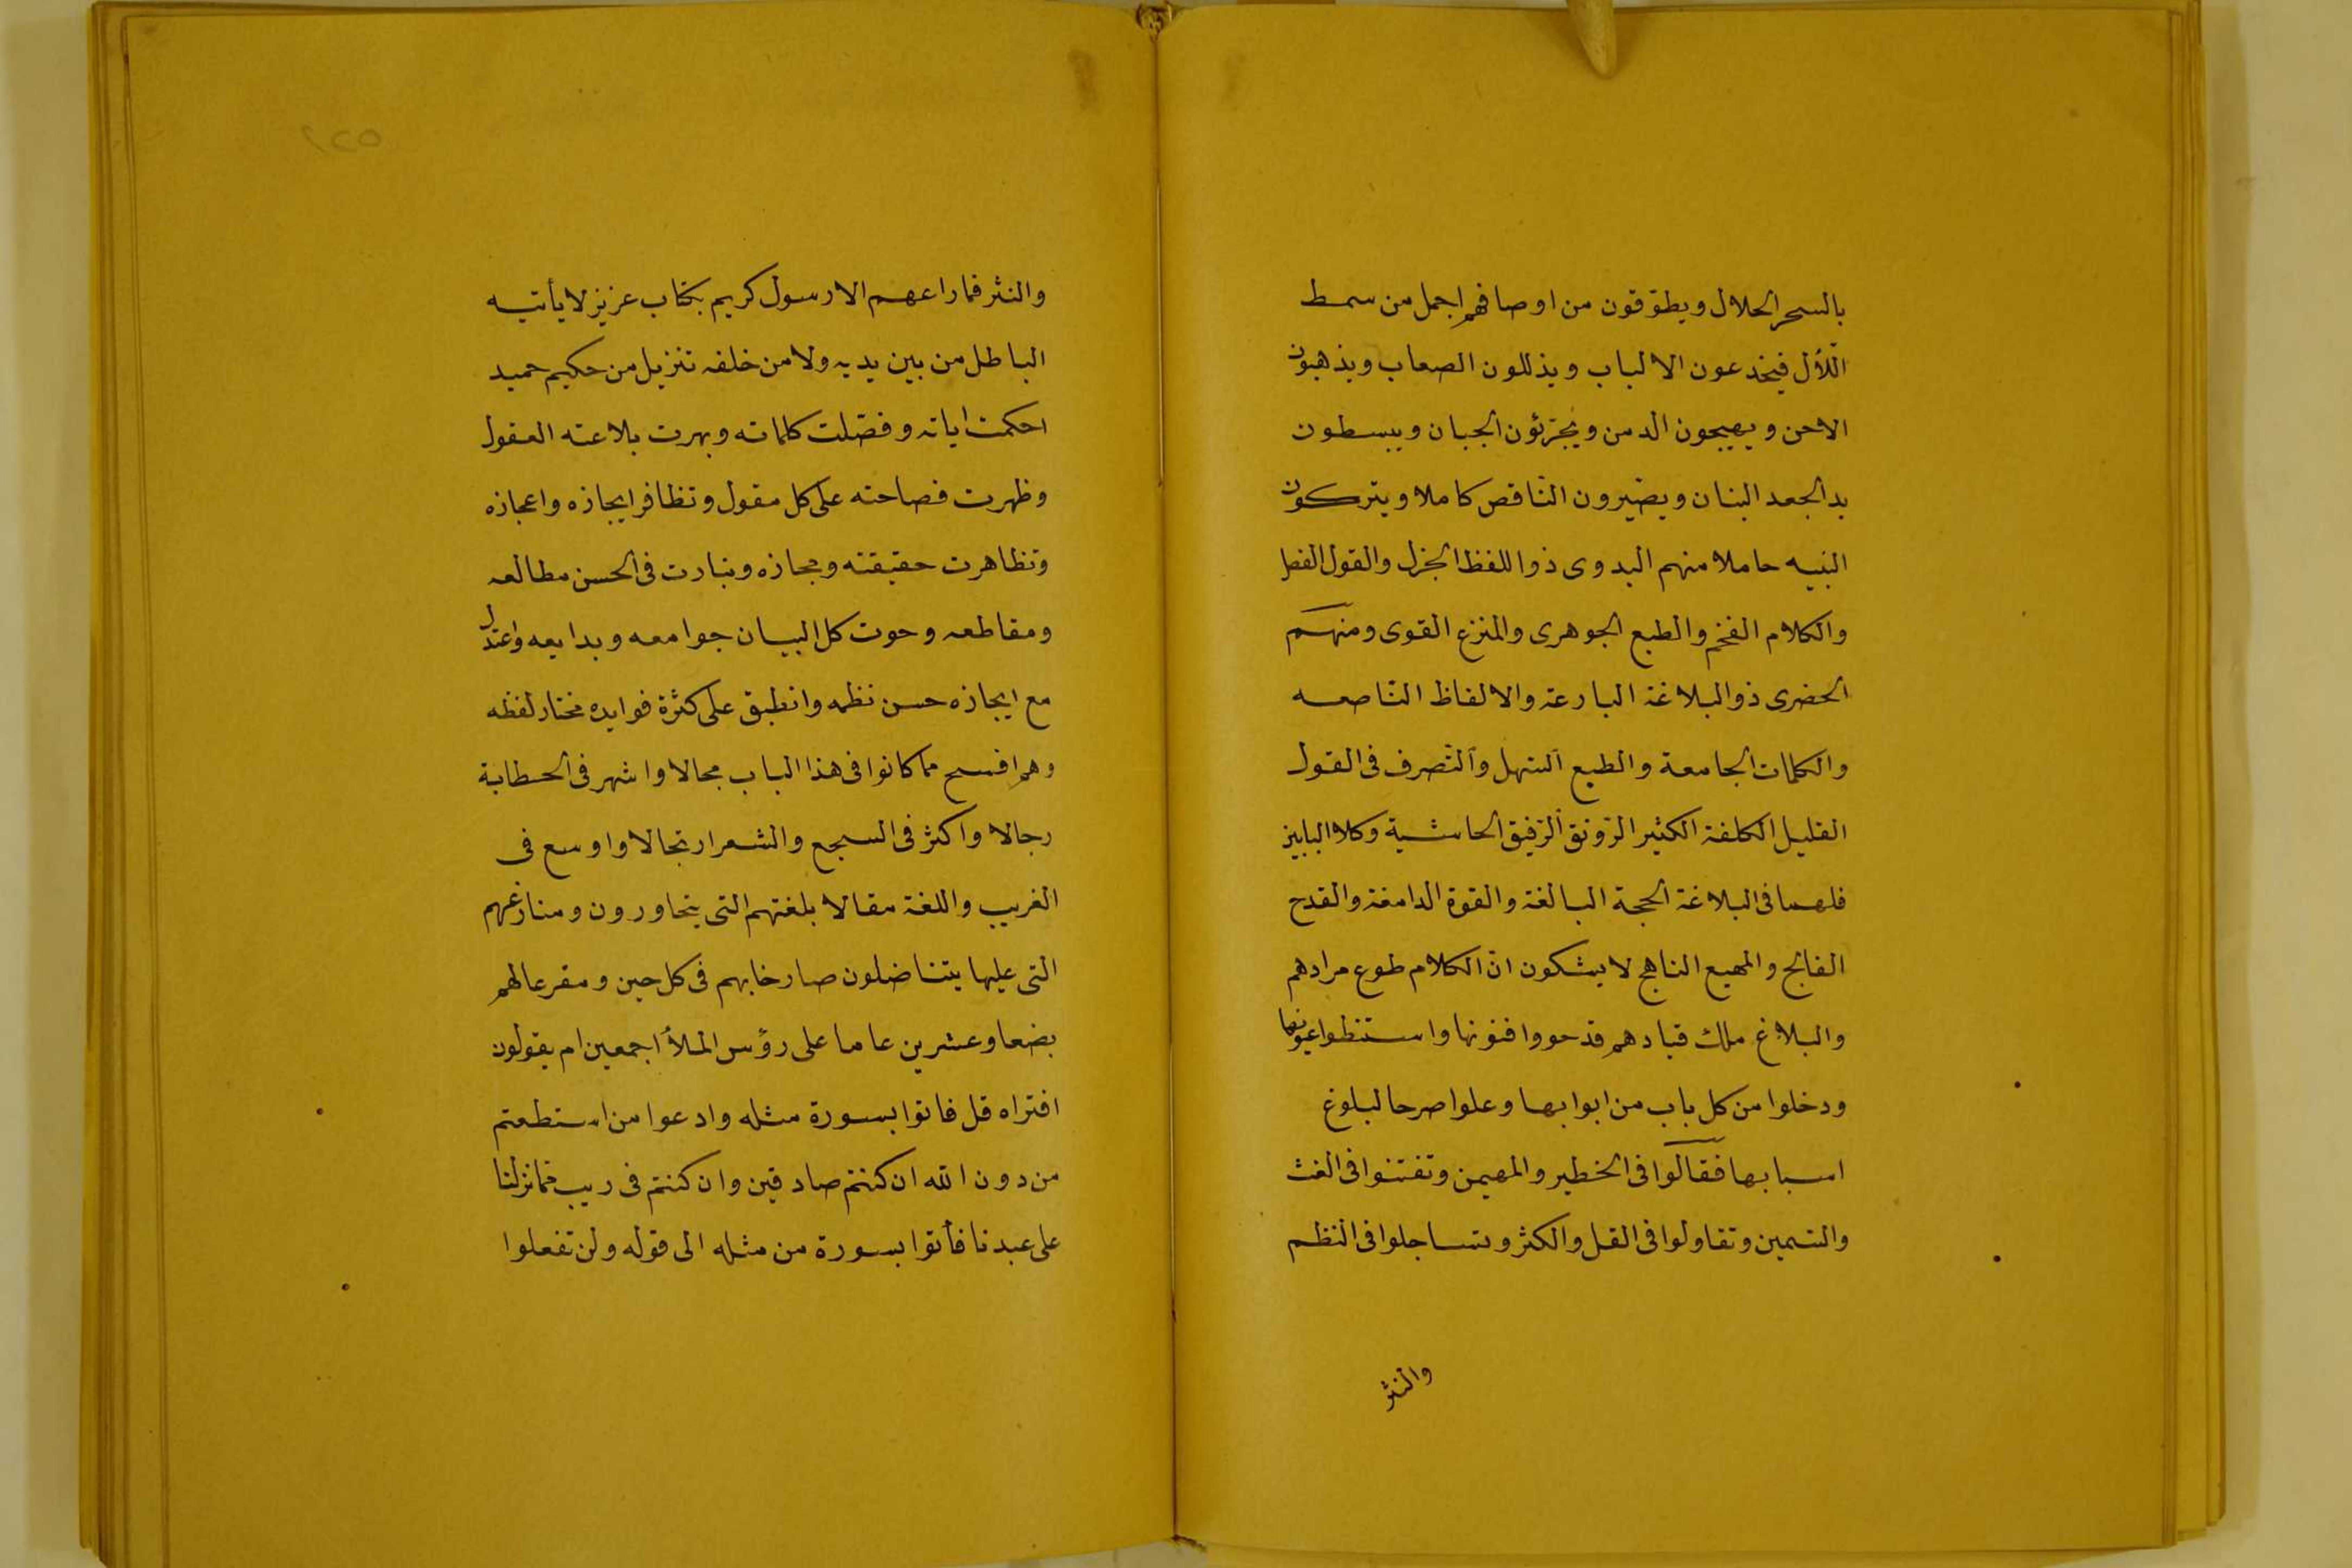 بالسحر الحلال ويطوّقون من اوصافهم اجمل من سمط
اللّآل فيخدعون الالباب ويذللون الصعاب ويذهبون
الاحن ويهيجون الدمن ويجرّئون الجبان ويبسطون
يد الجعد البنان ويصّيرون النّاقص كاملا ويتركون
النبيه خاملا منهم البدوى ذو اللفظ الجزل والقول الفصل
والكلام الفخم والطبع الجوهرى والمنزع القوى ومنهم
الحضرى ذو البلاغة البارعة والالفاظ النّاصعه
والكلمات الجامعة والطبع السّهل والتّصرف فى القول
القليل الكلفة الكثير الرّونق الرّقيق الحاشية وكلا البابين
فلهما فى البلاغة الحجة البالغة والقوة الدامغة والقدح
الفالج والمهيع الناهج لا يشكون انّ الكلام طوع مرادهم
والبلاغ ملك قيادهم قد حووا فنونها واستنطوا عيونها
ودخلوا من كل باب من ابوابها وعلوا صرحا لبلوغ
اسبابها فقالوا فى الخطير والمهين وتفتنوا فى الغث
والسّمين وتقاولوا فى القل والكثر وتساجلوا فى النظم
والنثر
والنثر فما راعهم الا رسول كريم بكتاب عزيز لا يأتيه
الباطل من بين يديه ولا من خلفه تنزيل من حكيم حميد
احكمت اياته وفصّلت كلماته وبهرت بلاعته العقول
وظهرت فصاحته على كل مقول وتظافر ايجازه واعجازه
وتظاهرت حقيقته ومجازه وتبارت فى الحسن مطالعه
ومقاطعه وحوت كل البيان جوامعه وبدايعه واعتدل
مع ايجازه حسن نظمه وانطبق على كثرة فوايده مختار لفظه
وهم افسح ما كانوا فى هذا الباب مجالا واشهر فى الخطابة
رجالا واكثر فى السجع والشعر ارتجالا واوسع فى
الغريب واللغة مقالا بلغتهم التى يتحاورون ومنازعهم
التى عليها يتناضلون صارخا بهم فى كل حين ومقرعا لهم
بضعا وعشرين عاما على رؤس الملأ اجمعين ام يقولون
افتراه قل فاتوا بسورة مثله وادعوا من استطعتم
من دون الله ان كنتم صادقين وان كنتم فى ريب مّما نزلنا
على عبدنا فأتوا بسورة من مثله الى قوله ولن تفعلوا